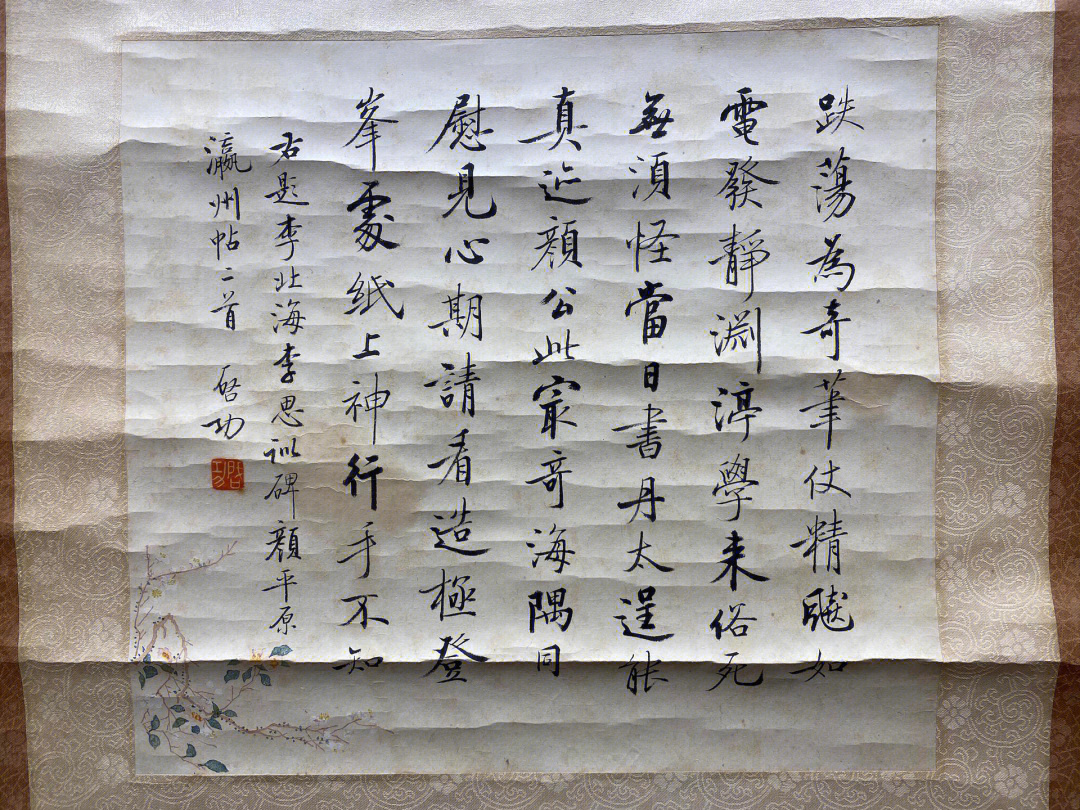 跌蕩為奇筆仗精如
電發靜淵渟學来俗死
無須怪當日書丹太逞能
真迹顔公此冣奇海隅同
慰見心期請看造極登
峯處紙上神行手不知
右題李北海李思訓碑顔平原
瀛州帖二首 啓功
啓功